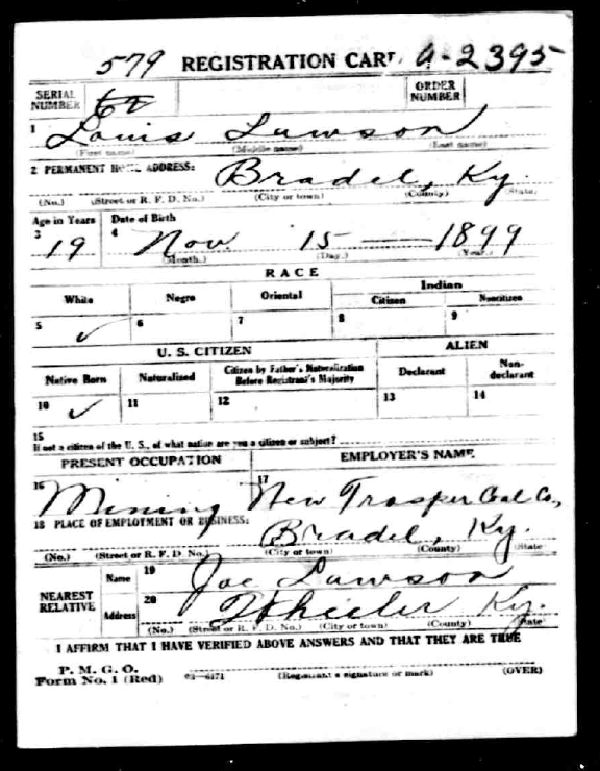 579 REGISTRATION CARD A-2395
SERIAL NUMBER ORDER NUMBER
1 Louis Lawson
(First name) (Middle name) (Last name)
2 PERMANENT HOME ADDRESS: Bradel, Ky.
(No.) (Street or R. F. D. No.) (City or town) (County) (State)
Age in Years Date of Birth
3 19 4 Nov. 15 — 1899
(Month.) (Day.) (Year.)
RACE
White Negro Oriental Indian
Citizen Noncitizen
5 ✓ 6 7 8 9
U. S. CITIZEN ALIEN
Native Born Naturalized Citizen by Father's Naturalization Before Registrant's Majority Declarant Non-declarant
10 ✓ 11 12 13 14
15
If not a citizen of the U. S., of what nation are you a citizen or subject?
PRESENT OCCUPATION EMPLOYER'S NAME
16 Mining 17 New Trosper Coal Co.,
18 PLACE OF EMPLOYMENT OR BUSINESS: Bradel, Ky.
(No.) (Street or R. F. D. No.) (City or town) (County) (State
NEAREST RELATIVE Name 19 Joe Lawson
Address 20 Wheeler Ky.
(No.) (Street or R. F. D. No.) (City or town) (County) (State)
I AFFIRM THAT I HAVE VERIFIED ABOVE ANSWERS AND THAT THEY ARE TRUE
P. M. G. O.
Form No. 1 (Red) 03—6171 (Registrant's signature or mark) (OVER)